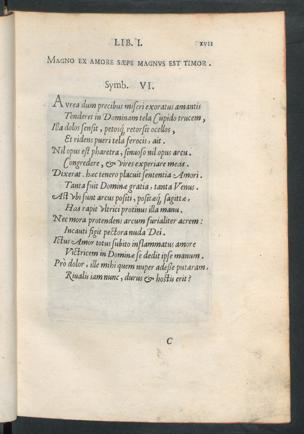 LIB. I. xvii
MAGNO EX AMORE SÆPE MAGNVS EST TIMOR.
Symb. VI.
Aurea dum precibus miseri exoratus amantis
Tenderet in Dominam tela Cupido trucem,
Illa dolos sensit, petosq́; retorsit ocellos,
Et ridens pueri tela ferocis, ait.
Nil opus est pharetra, sinuoso nil opus arcu.
Congredere, & vires experiare meas.
Dixerat. hæc tenero placuit sententia Amori.
Tanta fuit Dominæ gratia, tanta Venus.
Ast vbi sunt arcus positi, positæq́; sagittæ,
Has rapit vltrici protinus illa manu.
Nec mora protendens arcum furialiter acrem:
Incauti figit pectora nuda Dei.
Ictus Amor totus subito inflammatus amore
Victricem in Dominæ se dedit ipse manum.
Prò dolor, ille mihi quem nuper adesse putaram.
Riualis iam nunc, durus & hostis erit?
C